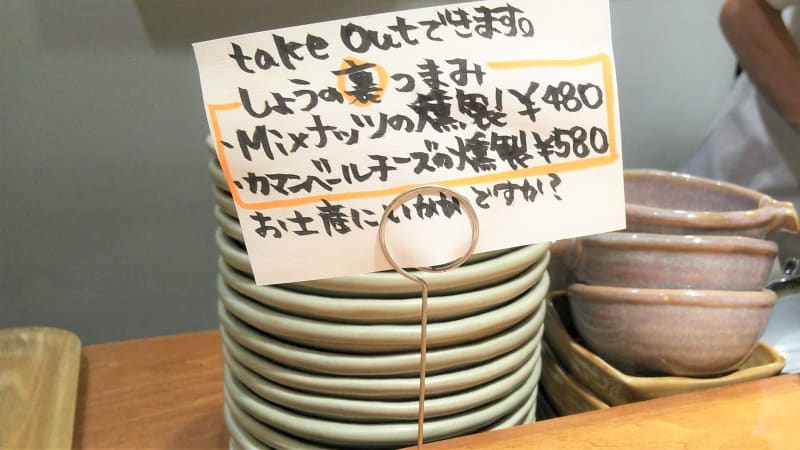 take outできます。
しょうの裏つまみ
・Mixナッツの燻製!¥480
・カマンベールチーズの燻製!¥580
お土産にいかがですか?